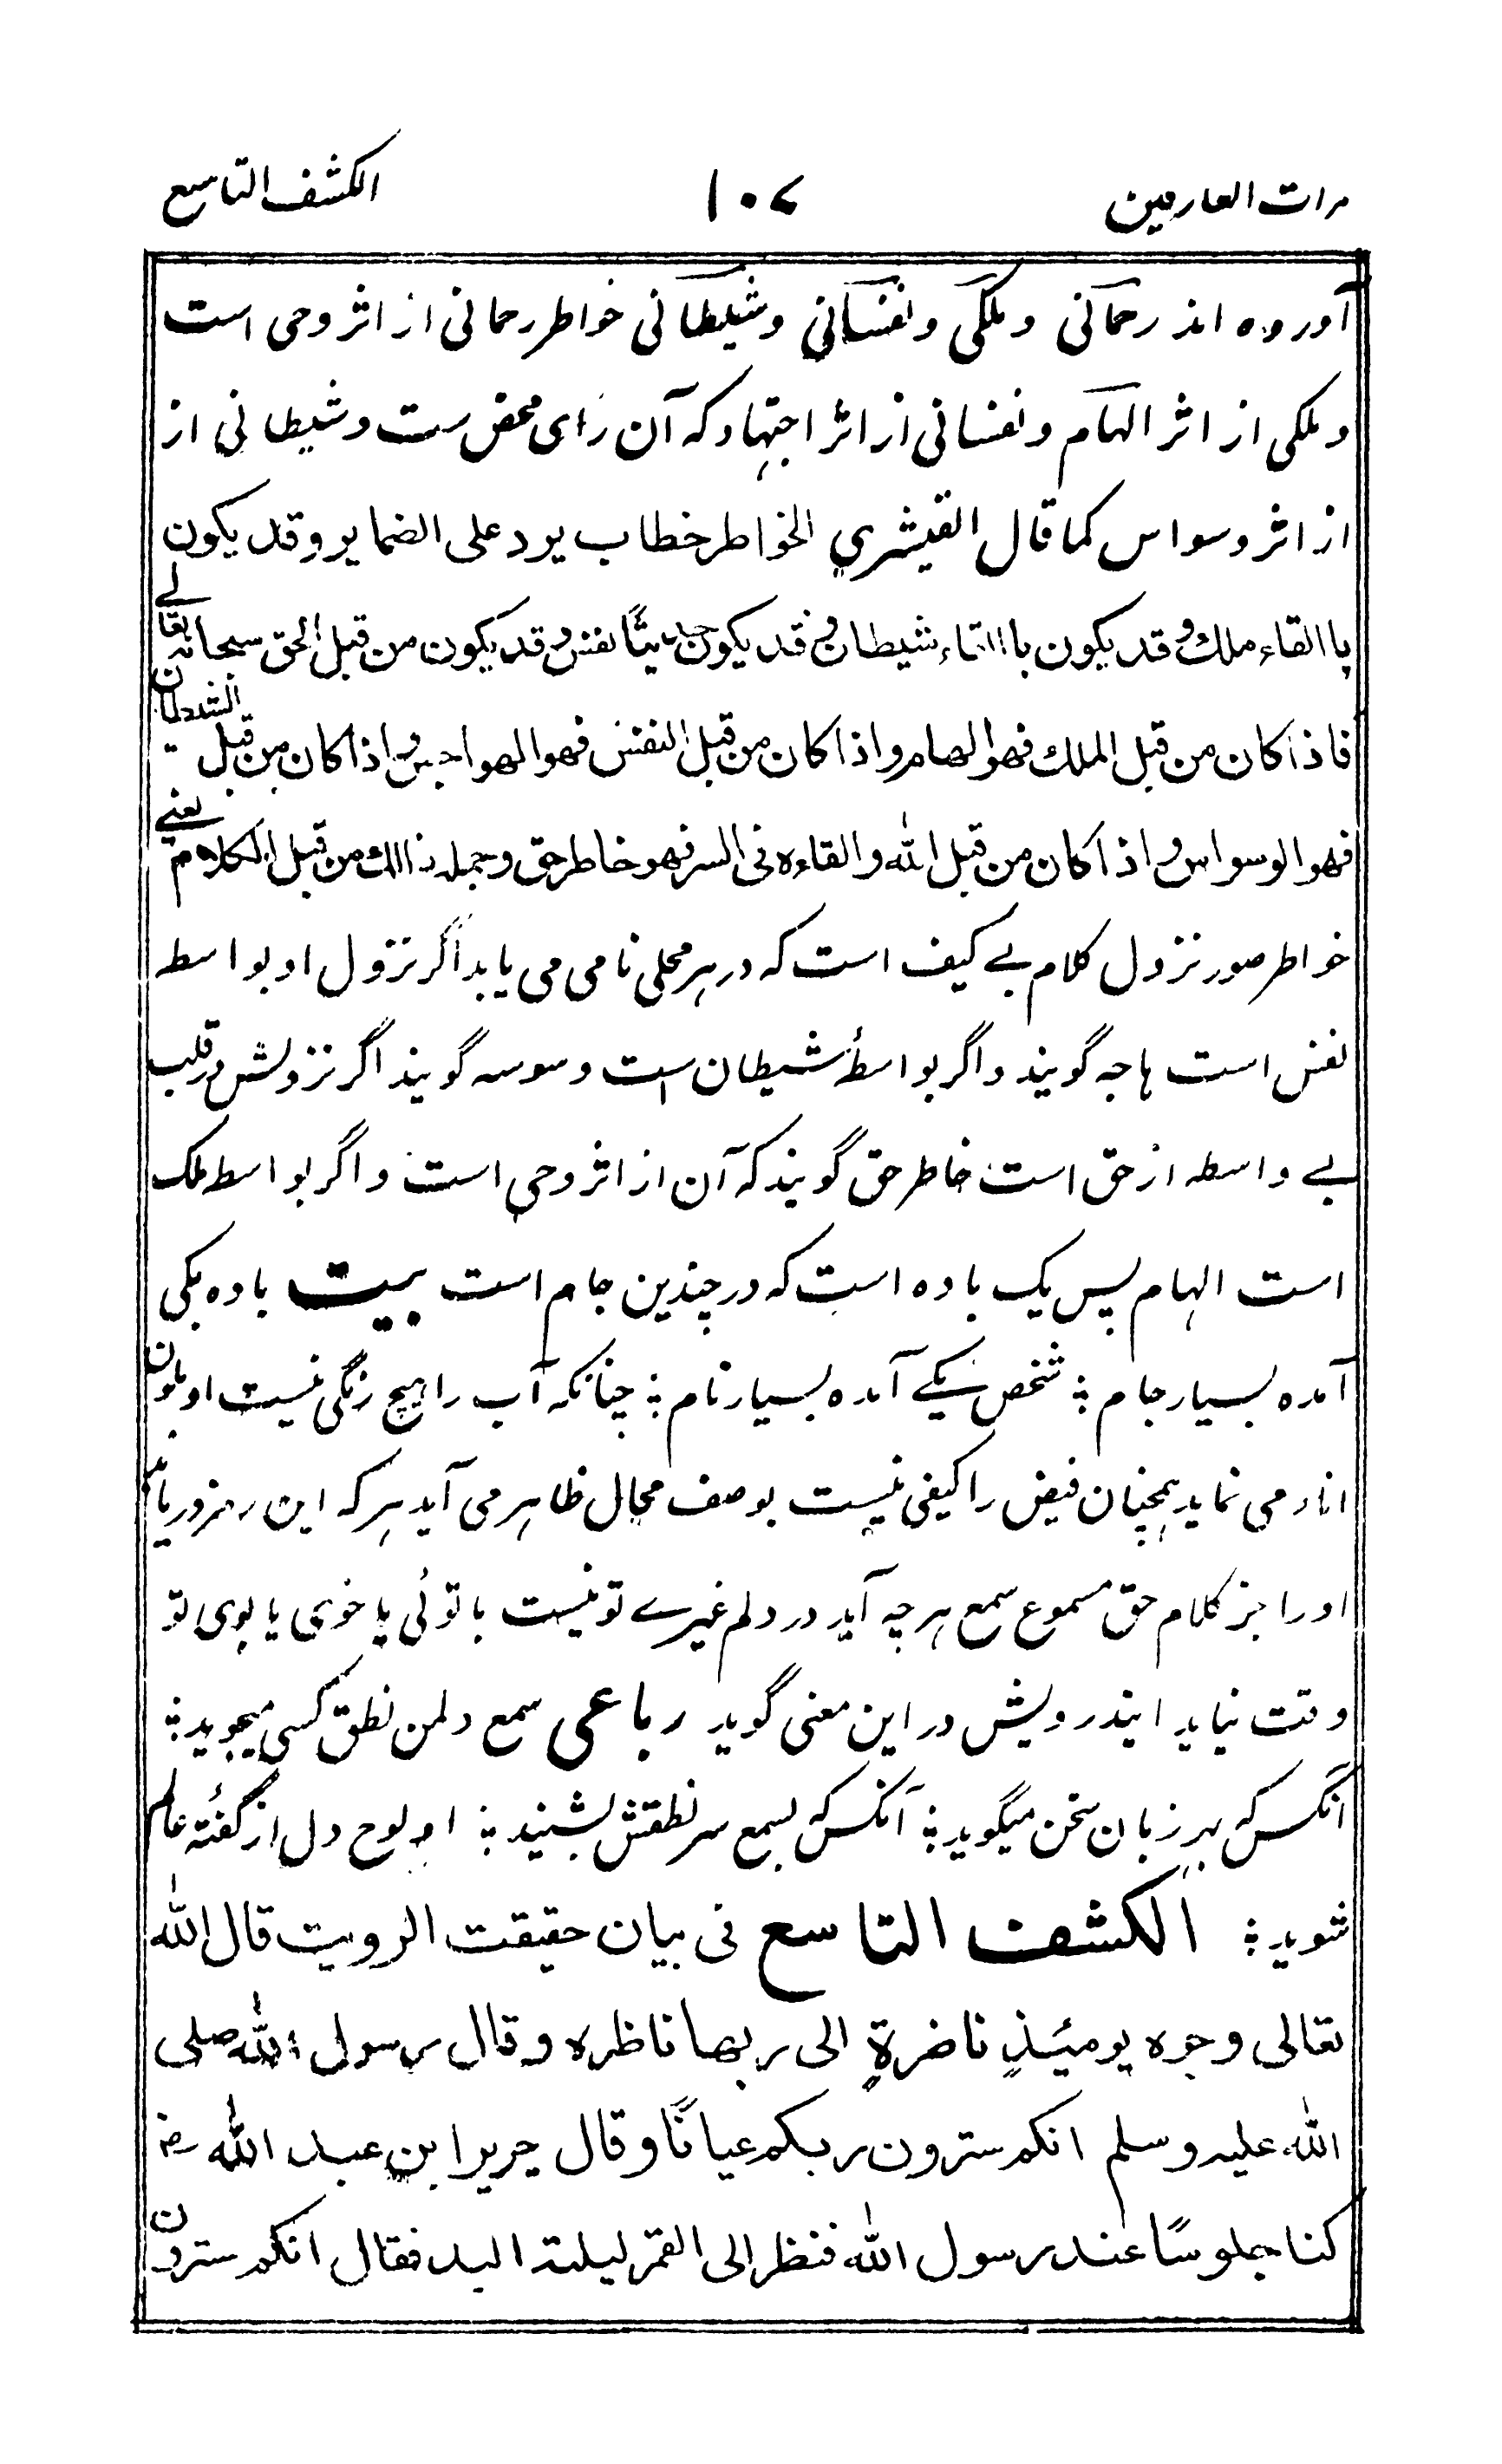 مرات العارفین ۱۰۷ الکشف التاسع
آورده اند رحمانی و ملکی و نفسانی و شیطانی خواطر رحمانی از اثر وحی است
و ملکی از اثر الهام و نفسانی از اثر اجتهاد که آن رای محض ست و شیطانی از
از اثر وسواس کما قال القیشری الخواطر خطاب یرد علی الضمایر و قد یکون
باالقاء ملك و قد یکون باالقاء شیطان و قد یکون حدیثا نفس و قد یکون من قبل الحق سبحانه تعالے
فاذا کان من قبل الملك فهو الهام و اذا کان من قبل النفس فهو الهواجس و اذا کان من قبل الشیطان
فهو الوسواس و اذا کان من قبل الله و القاءه فی السر فهو خاطر حق و جمله ذالك من قبل الکلام یعنے
خواطر صور نزول کلام بے کیف است که در هر محلی نامی می یابد اگر نزول او بواسطه
نفس است هاجه گویند و اگر بواسطهٔ شیطان است وسوسه گویند اگر نزولش در قلب
بے واسطه از حق است خاطر حق گویند که آن از اثر وحی است و اگر بواسطه ملک
است الهام پس یک باده است که در چندین جام است بیت باده یکی
آمده بسیار جام ؛ شخص یکے آمده بسیار نام ؛ چنانکه آب را هیچ رنگی نیست او بلون
اناء می نماید همچنان فیض را کیفی نیست بوصف محال ظاهر می آید هر که این رمز دریابد
اورا جز کلام حق مسموع سمع هرچه آید در دلم غیرے تو نیست یا توئی یا خوی یا بوی تو
وقت نیاید ایندرویش در این معنی گوید رباعی سمع دلمن نطق کسی میجوید ؛
آنکس که بهر زبان سخن میگوید ؛ آنکس که بسمع سر نطقش بشنید ؛ او لوح دل از گفتهٔ عالم
شوید ؛ الکشف التاسع فی بیان حقیقت الرویت قال الله
تعالی وجوه یومئذٍ ناضرةٍ الی ربها ناظره و قال رسول الله صلی
الله علیه وسلم انکم سترون ربکم عیانًا و قال جریر ابن عبد الله رض
کنا جلوسًا عند رسول الله فنظر الی القمر لیلة البد فقال انکم سترون